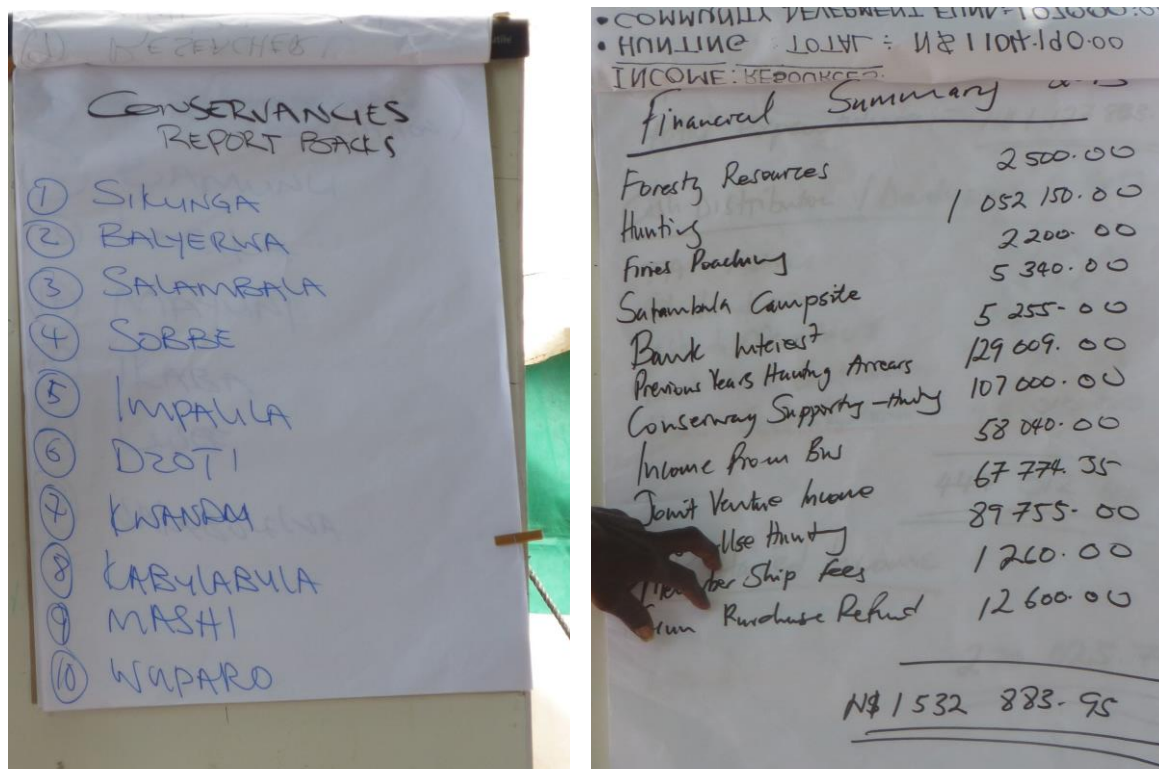 CONSERVANCIES
REPORT BACKS
1 SIKUNGA
2 BALYERWA
3 SALAMBALA
4 SOBBE
5 IMPALILA
6 DZOTI
7 KWANDU
8 KABULABULA
9 MASHI
10 WUPARO
• HUNTING TOTAL = N$ 1104.190.00
INCOME: RESOURCES
Financial Summary
Foresty Resources 2 500.00
Hunting 1 052 150.00
Fines Poaching 2200.00
Salambala Campsite 5 340.00
Bank Interest 5 255-00
Previous Years Hunting Arrears 129 009.00
Conservancy Supporting - Hunting 107 000.00
Income from Bus 58 040.00
Joint Venture Income 67 774.35
Use Hunting 89 755.00
Ship fees 1 260.00
Purchase Refund 12 600.00
N$ 1 532 883.95